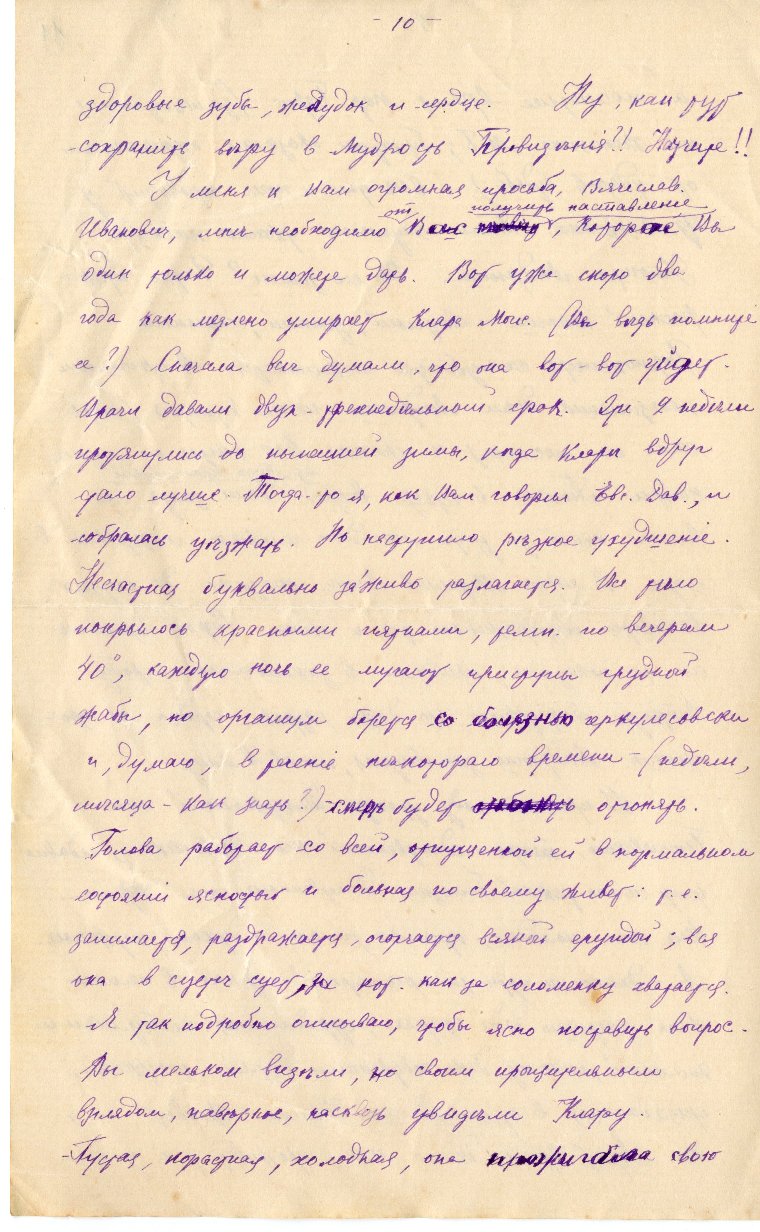 - 10 -
здоровые зубы, желудок и сердце. Ну, как тут
сохранить вѣру в Мудрость Провидѣнія?!! Научите!!
У меня к Вам огромная просьба, Вячеслав
получить наставленіе
Иванович, мнѣ необходимо от Вас, которое Вы
один только и можете дать. Вот уже скоро два
года как медлено умирает Клара Моис. (Вы вѣдь помните
ее?) Сначала всѣ думали, что она вот-вот уйдет.
Врачи давали двух-трехнедѣльный срок. Эти 9 недѣли
протянулись до нынѣшней зимы, когда Кларѣ вдруг
стало лучше. Тогда-то я, как Вам говорил Евс. Дав., и
собралась уѣзжать. Но наступило рѣзкое ухудшеніе.
Несчастная буквально за́живо разлагается. Все тѣло
покрылось красными пятнами, темп. по вечерам
40°, каждую ночь ее мучают приступы грудной
жабы, но организм борется со болѣзнью геркулесовски
и, думаю, в теченіе нѣкотораго времени - (недѣли,
мѣсяца - как знать?) - смерть будет отгонять.
Голова работает со всей, отпущенной ей в нормальном
состояніи ясностью и больная по своему живет: т. е.
занимается, раздражается, огорчается всякой ерундой; вся
она в суетѣ сует, за кот. как за соломенку хватается.
Я так подробно описываю, чтобы ясно поставить вопрос.
Вы мельком видѣли, но своим проницательным
взглядом, навѣрное, насквозь увидѣли Клару.
Пустая, холодная, она свою